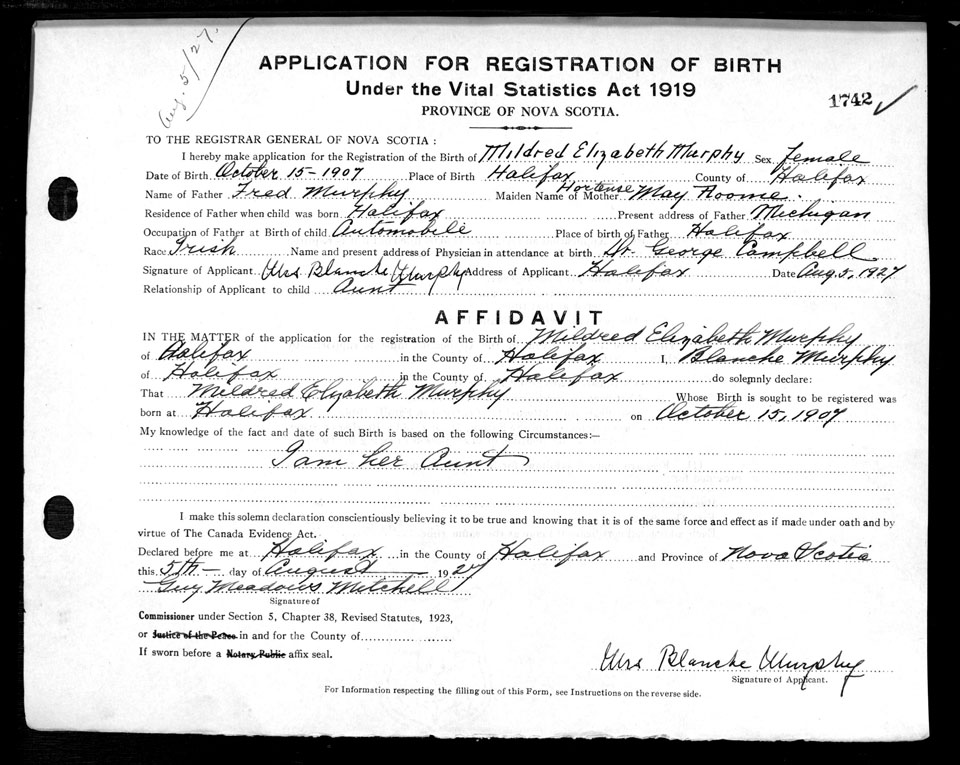 Aug. 5/27.
APPLICATION FOR REGISTRATION OF BIRTH
Under the Vital Statistics Act 1919
1742 ✓
PROVINCE OF NOVA SCOTIA.
TO THE REGISTRAR GENERAL OF NOVA SCOTIA:
I hereby make application for the Registration of the Birth of Mildred Elizabeth Murphy Sex female
Date of Birth October 15-1907 Place of Birth Halifax County of Halifax
Name of Father Fred Murphy Maiden Name of Mother Hortense May Roome
Residence of Father when child was born Halifax Present address of Father Michigan
Occupation of Father at Birth of child Automobile Place of birth of Father Halifax
Race Irish Name and present address of Physician in attendance at birth Dr. George Campbell
Signature of Applicant Mrs Blanche Murphy Address of Applicant Halifax Date Aug 5, 1927
Relationship of Applicant to child Aunt
AFFIDAVIT
IN THE MATTER of the application for the registration of the Birth of Mildred Elizabeth Murphy
of Halifax in the County of Halifax I, Blanche Murphy
of Halifax in the County of Halifax do solemnly declare:
That Mildred Elizabeth Murphy Whose Birth is sought to be registered was
born at Halifax on October 15, 1907
My knowledge of the fact and date of such Birth is based on the following Circumstances:—
I am her Aunt
I make this solemn declaration conscientiously believing it to be true and knowing that it is of the same force and effect as if made under oath and by
virtue of The Canada Evidence Act.
Declared before me at Halifax in the County of Halifax and Province of Nova Scotia
this 5th- day of August 1927
Guy Meadows Mitchell
Signature of
Commissioner under Section 5, Chapter 38, Revised Statutes, 1923,
or Justice of the Peace in and for the County of
If sworn before a Notary Public affix seal.
Mrs Blanche Murphy
Signature of Applicant.
For Information respecting the filling out of this Form, see Instructions on the reverse side.